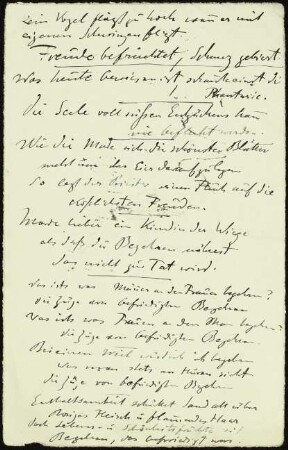 Kein Vogel fliegt zu hoch wenn er mit
eigenen Schwingen fliegt.
Freude befruchtet, Schmerz gebiert.
Was heute bewiesen ist schaute einst die
Phantasie.
Die Seele voll süssen Entzückens kann
nie befleckt werden.
Wie die Made sich die schönsten Blätter
wählt um ihre Eier darauf zu legen
So legt der Priester seinen Fluch auf die
Freuden.
Morde lieber ein Kind in der Wiege
als daß du Begehren nährest
das nicht zur Tat wird.
Was ists was Männer an den Frauen begehren?
die Züge von befriedigtem Begehren
Was ists was Frauen an den begehren?
die Züge von befriedigtem Begehren
Bei einem Weib würde ich begehren
was man stets an Huren sieht
die Züge von befriedigtem Begehren
Enthaltsamkeit schüttet Sand all über
Rosiges Fleisch u flammendes Haar
Doch Lebens- u Schönheitsfrüchte
Begehren, das befriedigt war.